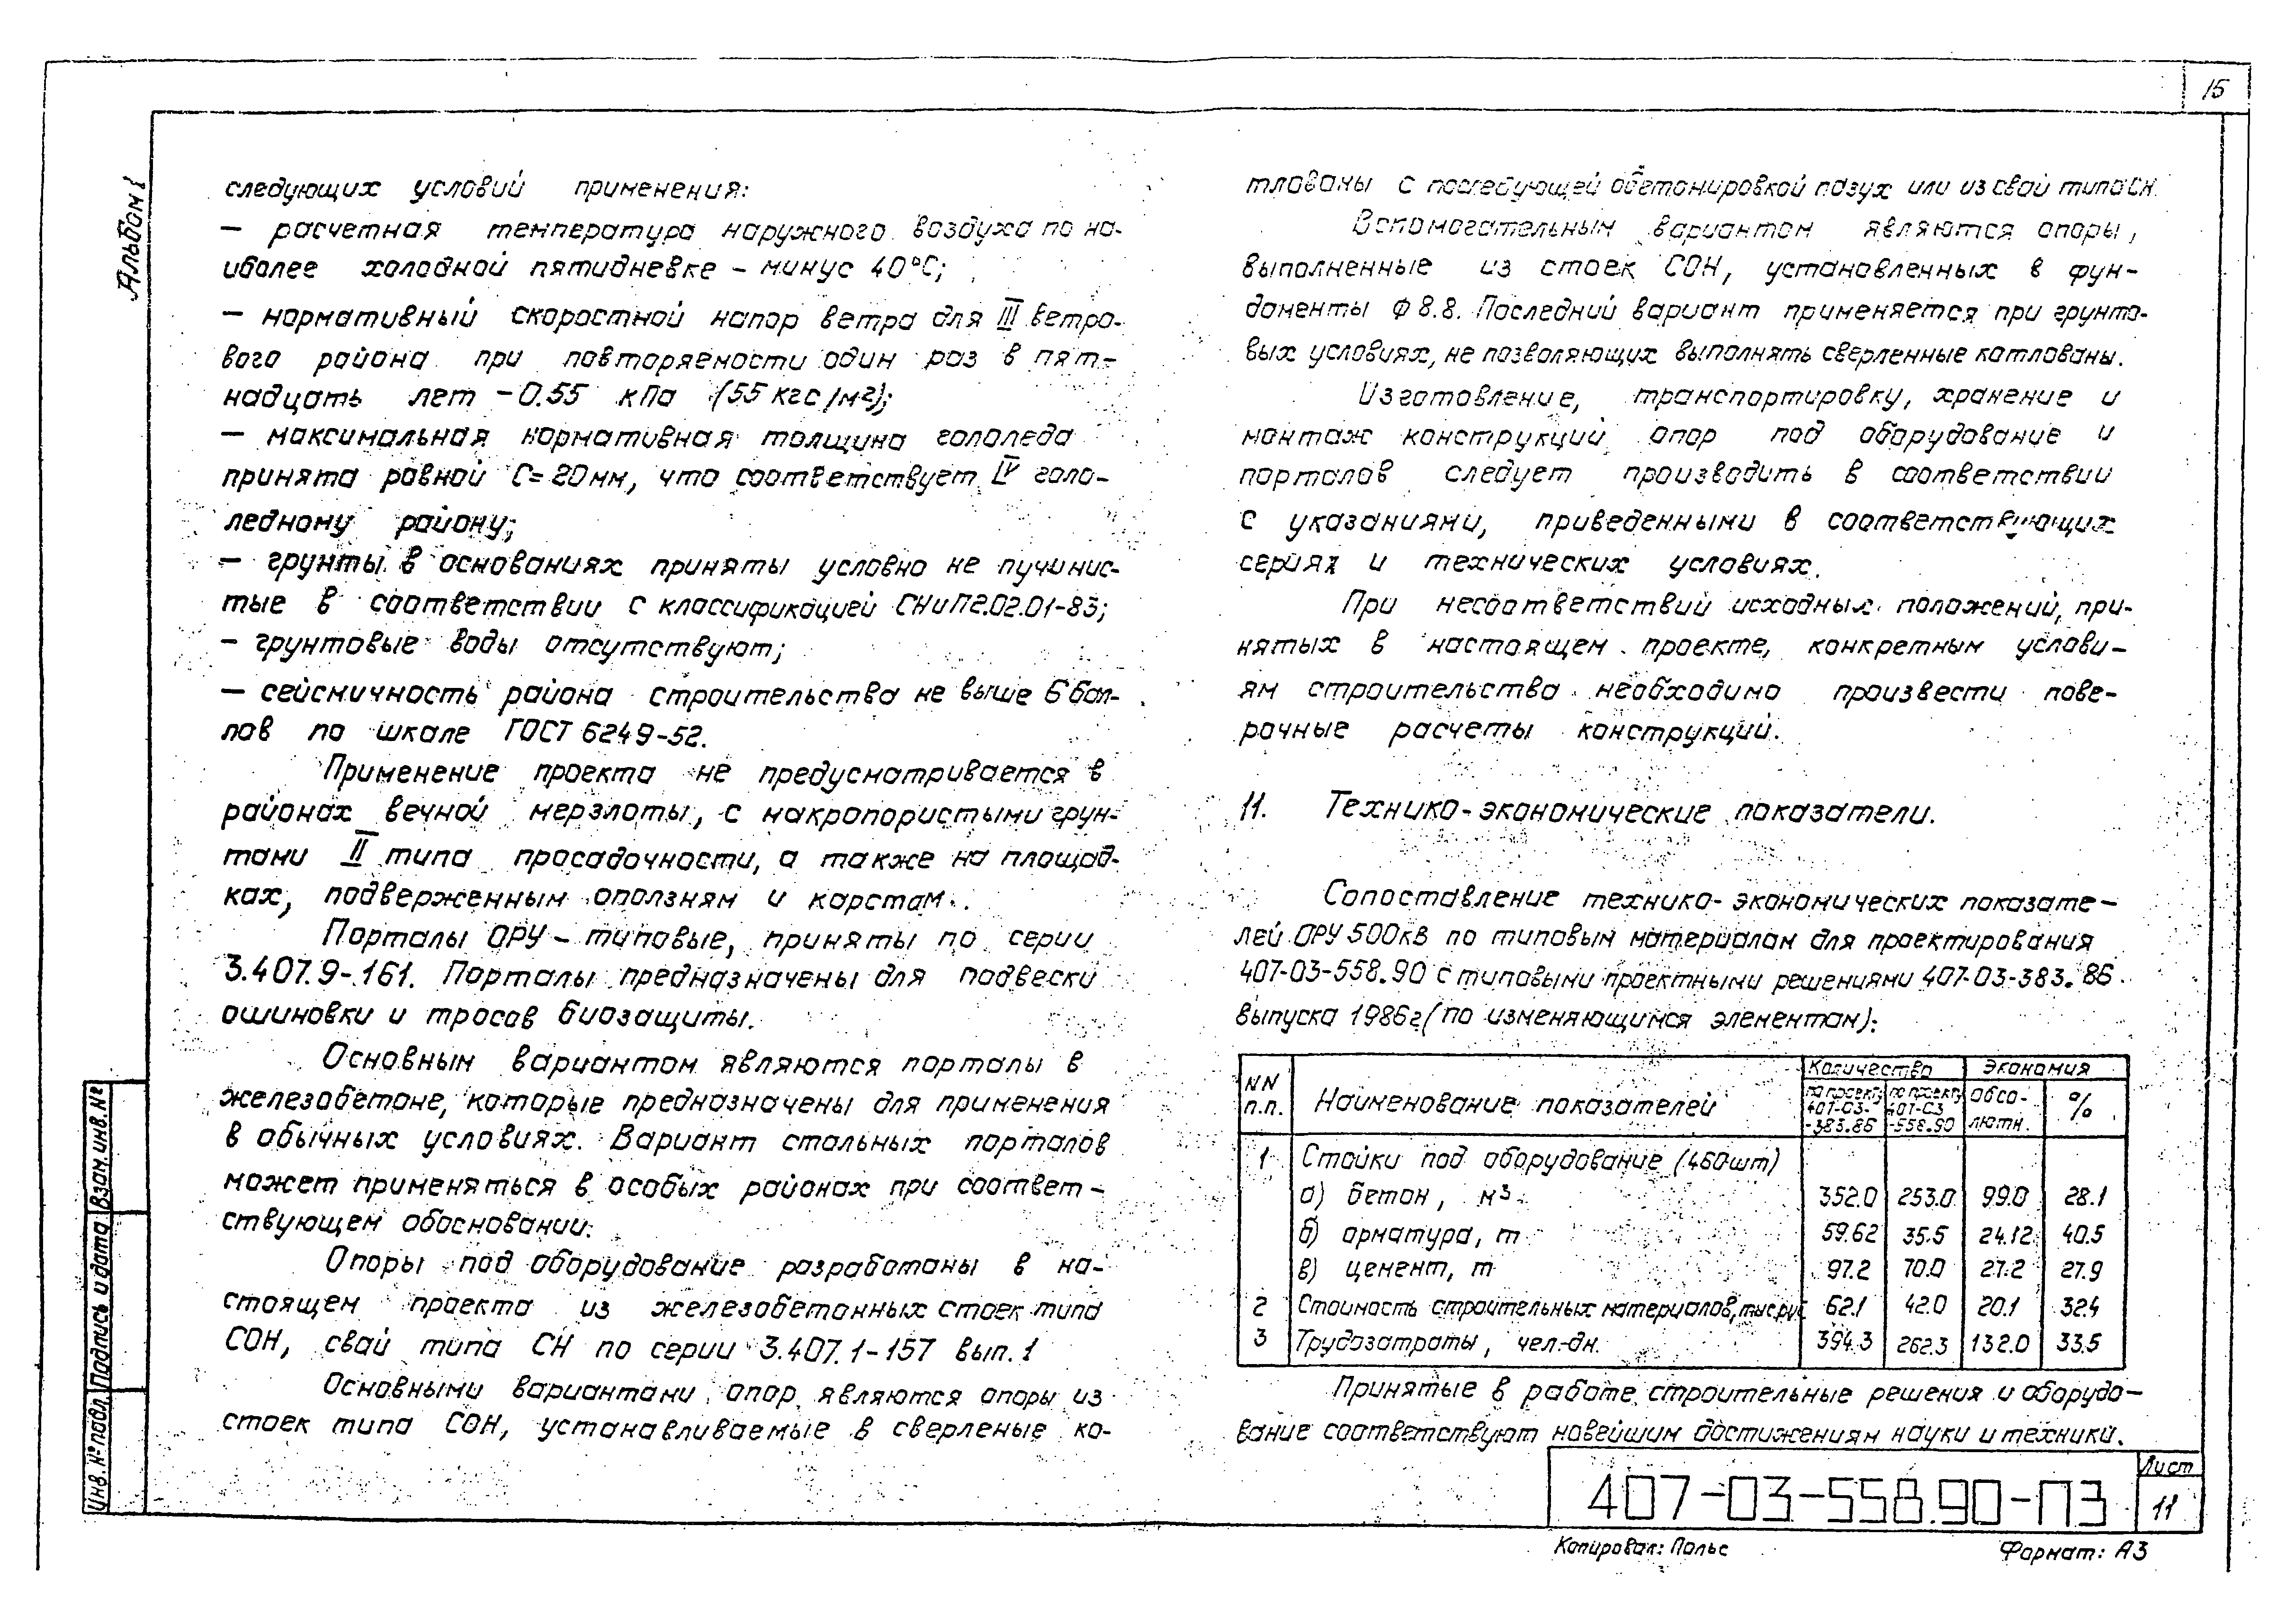 15
Альбом 1
следующих условий применения:
— расчетная температура наружного воздуха по на-
иболее холодной пятидневке – минус 40°С;
— нормативный скоростной напор ветра для III ветро-
вого района при повторяемости один раз в пят-
надцать лет – 0.55 кПа (55 кгс/м²);
— максимальная нормативная толщина гололеда
принята равной С=20мм, что соответствует IV голо-
ледному району;
— грунты в основаниях приняты условно не пучинис-
тые в соответствии с классификацией СНиП2.02.01-83;
– грунтовые воды отсутствуют;
— сейсмичность района строительства не выше 6 бал-
лов по шкале ГОСТ 6249-52.
Применение проекта не предусматривается в
районах вечной мерзлоты, с макропористыми грун-
тами II типа просадочности, а также на площад-
ках, подверженным оползням и карстам.
Порталы ОРУ – типовые, приняты по серии
3.407.9-161. Порталы предназначены для подвески
ошиновки и тросов биозащиты.
Основным вариантом являются порталы в
железобетоне, которые предназначены для применения
в обычных условиях. Вариант стальных порталов
может применяться в особых районах при соответ-
ствующем обосновании.
Опоры под оборудование разработаны в на-
стоящем проекта из железобетонных стоек типа
СОН, свай типа СН по серии 3.407.1-157 вып.1
Основными вариантами опор являются опоры из
стоек типа СОН, устанавливаемые в сверленые ко-
тлованы с последующей обетонировкой пазух или из свай типа СН.
Вспомогательным вариантом являются опоры,
выполненные из стоек СОН, установленных в фун-
даменты Ф 8.8. Последний вариант применяется при грунто-
вых условиях, не позволяющих выполнять сверленные котлованы.
Изготовление, транспортировку, хранение и
монтаж конструкций опор под оборудование и
порталов следует производить в соответствии
с указаниями, приведенными в соответствующих
сериях и технических условиях.
При несоответствий исходных положений, при-
нятых в настоящем проекте, конкретным услови-
ям строительства необходимо произвести пове-
рочные расчеты конструкций.
11. Технико-экономические показатели.
Сопоставление технико-экономических показате-
лей ОРУ 500кВ по типовым материалам для проектирования
407-03-558.90 с типовыми проектными решениями 407-03-383.86
выпуска 1986г (по изменяющимся элементам):
NN п.п. Наименование показателей Количество Экономия
по проекту 407-03-383.86 по проекту 407-03-558.90 абсо-лютн. %
1 Стойки под оборудование (460шт)
а) бетон, м³ 352.0 253.0 99.0 28.1
б) арматура, т 59.62 35.5 24.12 40.5
в) цемент, т 97.2 70.0 27.2 27.9
2 Стоимость строительных материалов, тыс.руб 62.1 42.0 20.1 32.4
3 Трудозатраты, чел.-дн. 394.3 262.3 132.0 33.5
Принятые в работе строительные решения и оборудо-
вание соответствуют новейшим достижениям науки и техники.
407-03-558.90-ПЗ
Лист
11
Копировал: Польс
Формат: А3
Инв. № подл. Подпись и дата Взам. инв. №